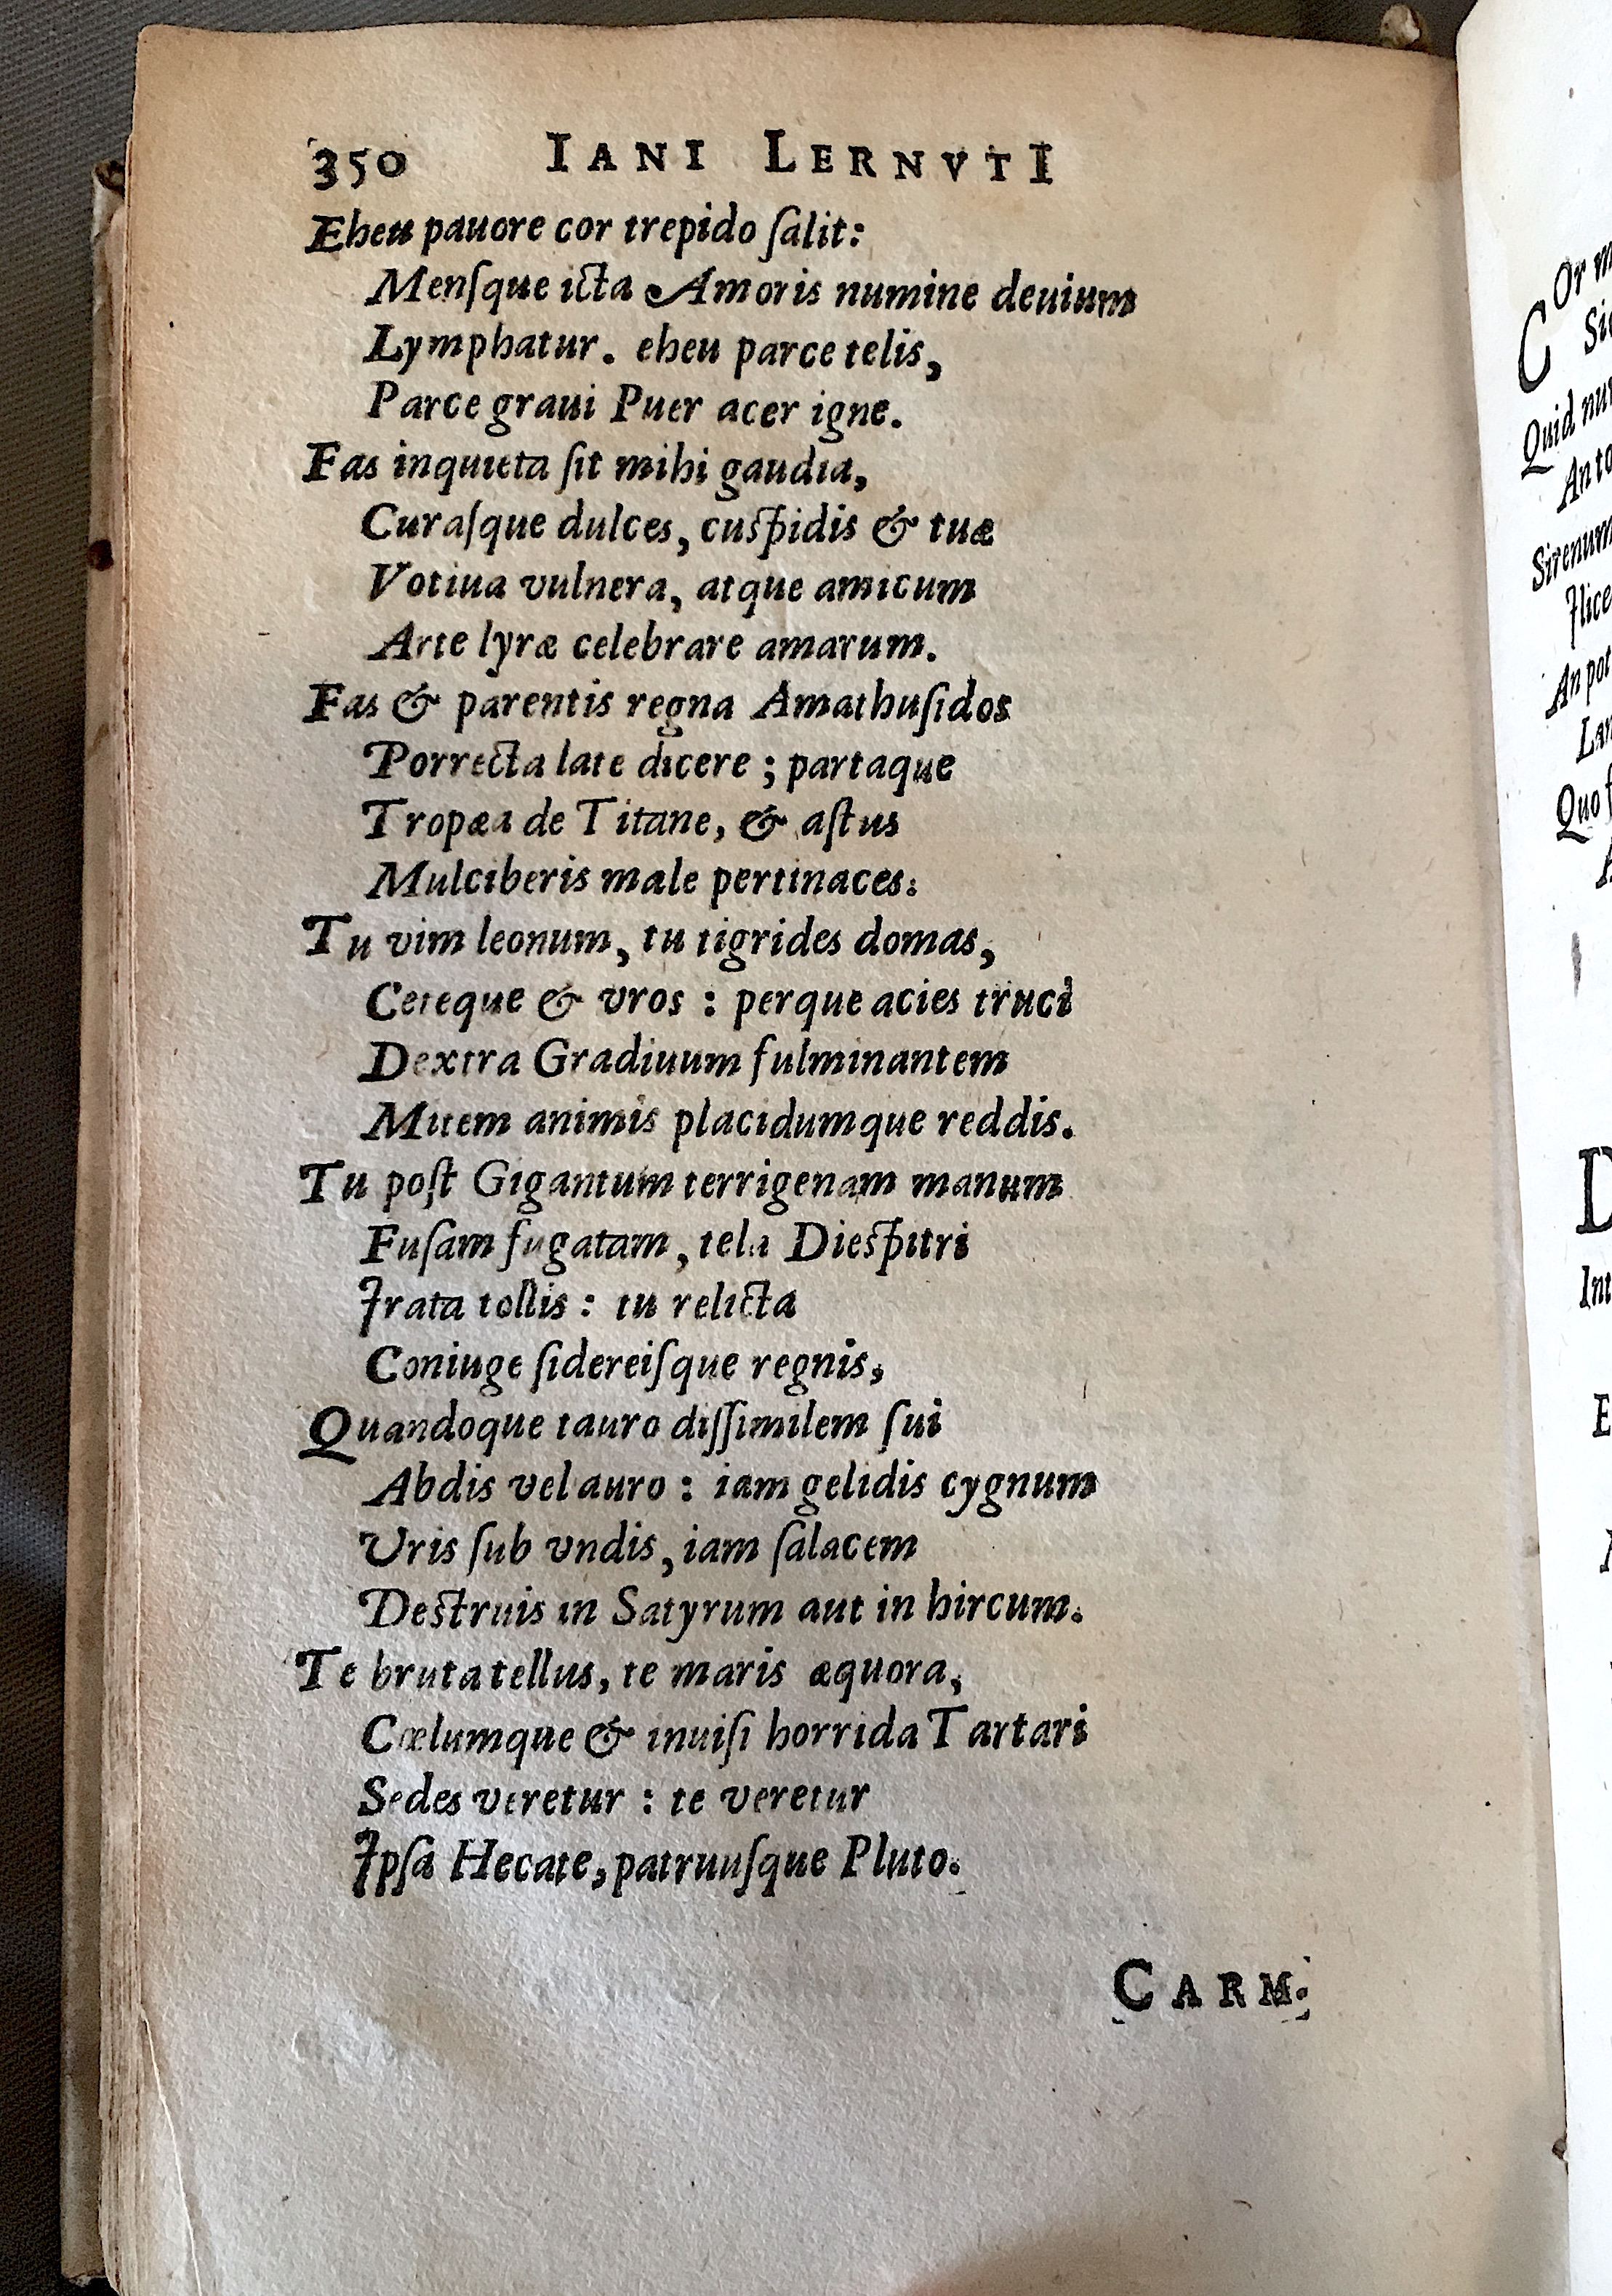 350 IANI LERNVTI
Eheu pauore cor trepido ſalit:
Menſque icta Amoris numine deuium
Lymphatur. eheu parce telis,
Parce graui Puer acer igne.
Fas inquieta ſit mihi gaudia,
Curaſque dulces, cuſpidis & tuæ
Votiua vulnera, atque amicum
Arte lyræ celebrare amarum.
Fas & parentis regna Amathuſidos
Porrecta late dicere; partaque
Tropæa de Titane, & aſtus
Mulciberis male pertinaces.
Tu vim leonum, tu tigrides domas,
Ceteque & vros: perque acies truci
Dextra Gradiuum fulminantem
Mitem animis placidumque reddis.
Tu poſt Gigantum terrigenam manum
Fuſam fugatam, tela Dieſpitri
Irata tollis: tu relicta
Coniuge ſidereiſque regnis,
Quandoque tauro diſſimilem ſui
Abdis vel auro: iam gelidis cygnum
Vris ſub vndis, iam ſalacem
Deſtruis in Satyrum aut in hircum.
Te bruta tellus, te maris æquora,
Cœlumque & inuiſi horrida Tartari
Sedes veretur: te veretur
Ipſa Hecate, patruuſque Pluto.
CARM.
Or
C
Quid
Sirenum
Ilice
An
Quo
D